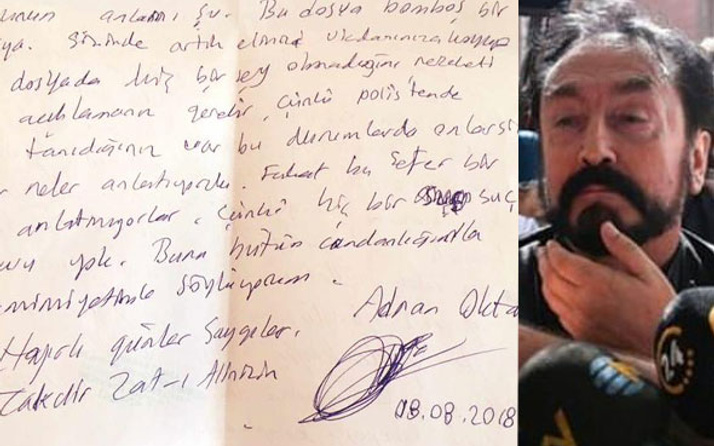 anlamı şu. Bu dosya bomboş bir
Sizinde artık elinizi vicdanınıza koyup
dosyada hiç bir şey olmadığını
açıklamanız gerekir, çünkü polistende
tanıdığınız var bu durumlarda onlar
neler anlatıyordu. Fakat bu sefer bir
anlatmıyorlar, çünkü hiç bir suç
yok. Bunu bütün candanlığımla
söylüyorum.
Adnan Okta
Hayırlı günler Saygılar.
Zat-ı Alinizin
08.08.2018
24